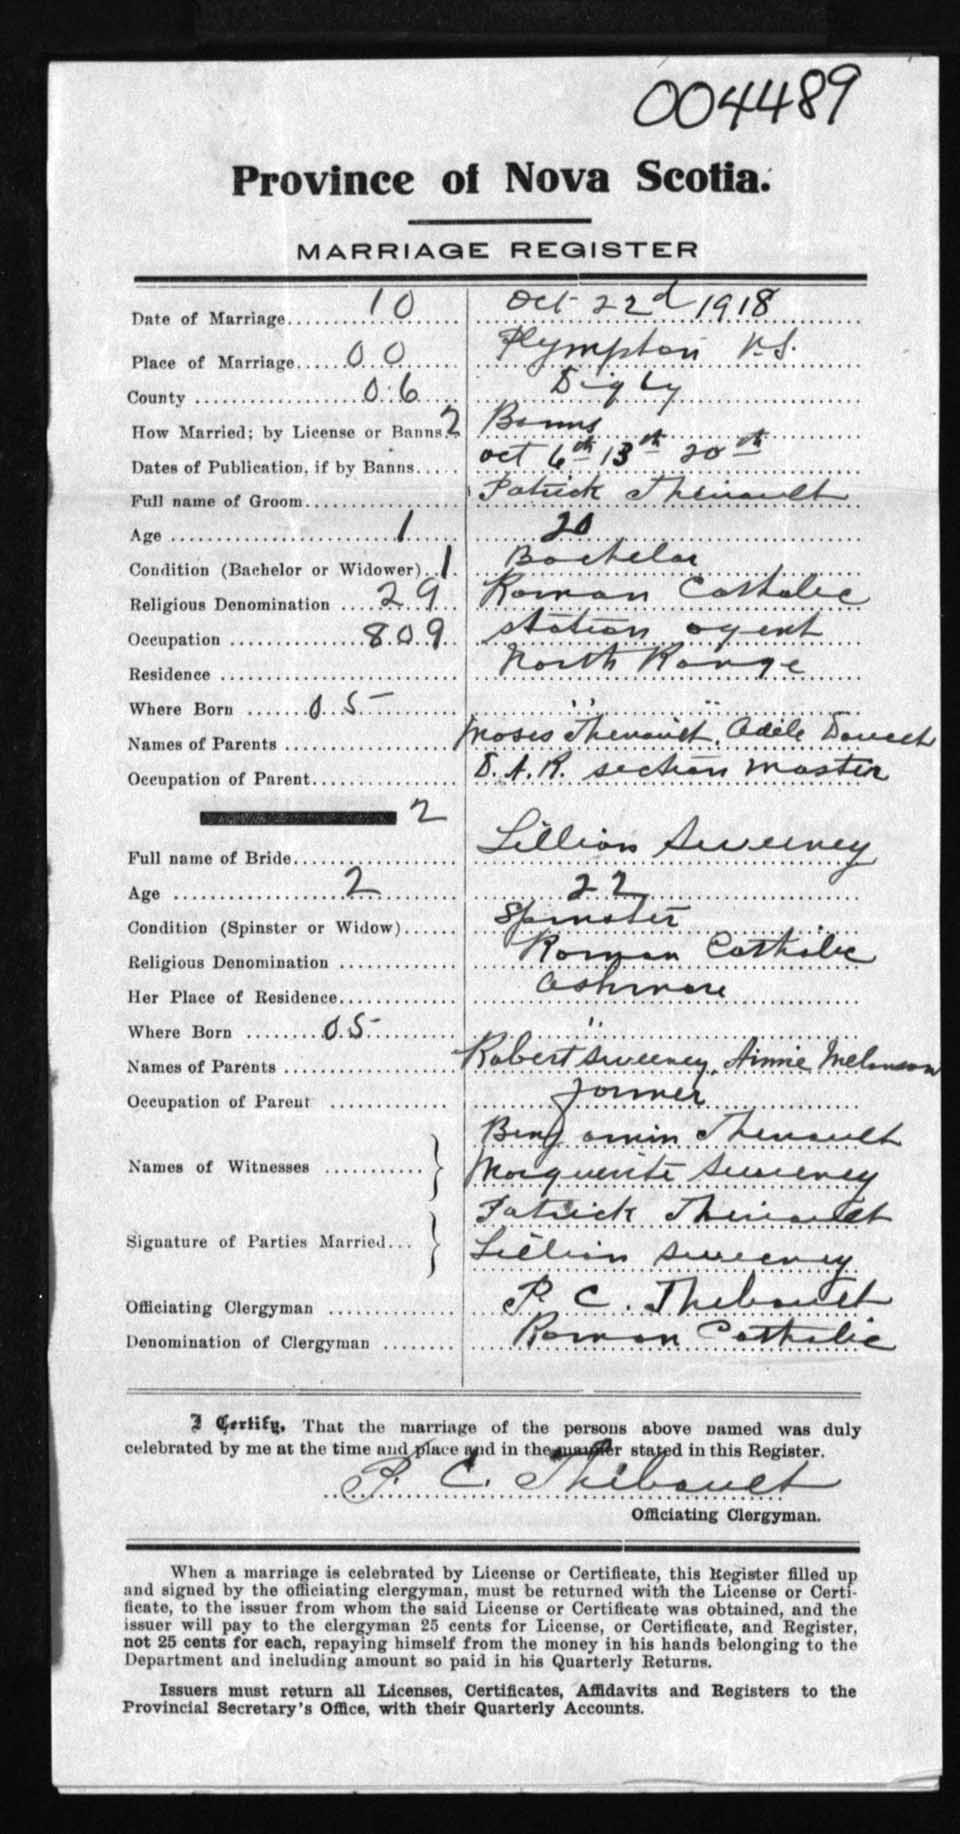 004489
Province of Nova Scotia.
MARRIAGE REGISTER
Date of Marriage 10 Oct 22d 1918
Place of Marriage 00 Plympton N.S.
County 06 Digby
How Married; by License or Banns 2 Banns
Dates of Publication, if by Banns Oct 6th 13th 20th
Full name of Groom Patrick Theriault
Age 1 20
Condition (Bachelor or Widower) 1 Bachelor
Religious Denomination 29 Roman Catholic
Occupation 809 station agent
Residence North Range
Where Born 05 " "
Names of Parents Moses Theriault, Adele Doucet
Occupation of Parent D.A.R. section Master
2
Full name of Bride Lillian Sweeney
Age 2 22
Condition (Spinster or Widow) Spinster
Religious Denomination Roman Catholic
Her Place of Residence Ashmore
Where Born 05 "
Names of Parents Robert Sweeney, Annie Melanson
Occupation of Parent farmer
Names of Witnesses Benjamin Theriault
Marguerite Sweeney
Signature of Parties Married Patrick Theriault
Lillian Sweeney
Officiating Clergyman P. C. Thibault
Denomination of Clergyman Roman Catholic
I Certify, That the marriage of the persons above named was duly
celebrated by me at the time and place and in the manner stated in this Register.
P. C. Thibault
Officiating Clergyman.
When a marriage is celebrated by License or Certificate, this Register filled up
and signed by the officiating clergyman, must be returned with the License or Certi-
ficate, to the issuer from whom the said License or Certificate was obtained, and the
issuer will pay to the clergyman 25 cents for License, or Certificate, and Register,
not 25 cents for each, repaying himself from the money in his hands belonging to the
Department and including amount so paid in his Quarterly Returns.
Issuers must return all Licenses, Certificates, Affidavits and Registers to the
Provincial Secretary's Office, with their Quarterly Accounts.